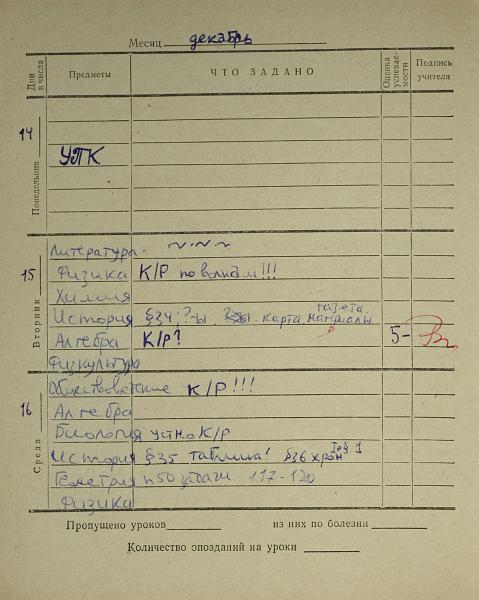 Месяц декабрь
Дни и числа Предметы ЧТО ЗАДАНО Оценка успевае- мости Подпись учителя
14 Понедельник
УПК
15 Вторник
Литература
Физика К/Р по волнам!!!
Химия
газета
История §34; ?-ы карта, материалы
Алгебра К/Р? 5-
Физкультура
16 Среда
Обществоведение К/Р!!!
Алгебра
Биология устно К/Р
История §35 таблица! §36 хрон
Геометрия п50 задачи 117-120
Физика
Пропущено уроков из них по болезни
Количество опозданий на уроки